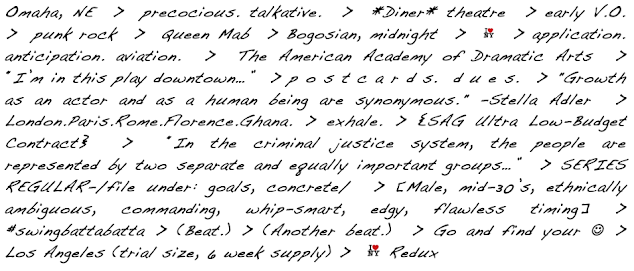 Omaha, NE > precocious. talkative. > *Diner* theatre > early V.O.
> punk rock > Queen Mab > Bogosian, midnight > I ♥ NY > application.
anticipation. aviation. > The American Academy of Dramatic Arts >
"I'm in this play downtown..." > p o s t c a r d s. d u e s. > "Growth
as an actor and as a human being are synonymous." -Stella Adler >
London.Paris.Rome.Florence.Ghana. > exhale. > {SAG Ultra Low-Budget
Contract} > "In the criminal justice system, the people are
represented by two separate and equally important groups..." > SERIES
REGULAR-/file under: goals, concrete/ > [Male, mid-30's, ethnically
ambiguous, commanding, whip-smart, edgy, flawless timing] >
#swingbattabatta > (Beat.) > (Another beat.) > Go and find your ☺ >
Los Angeles (trial size, 6 week supply) > I ♥ NY Redux